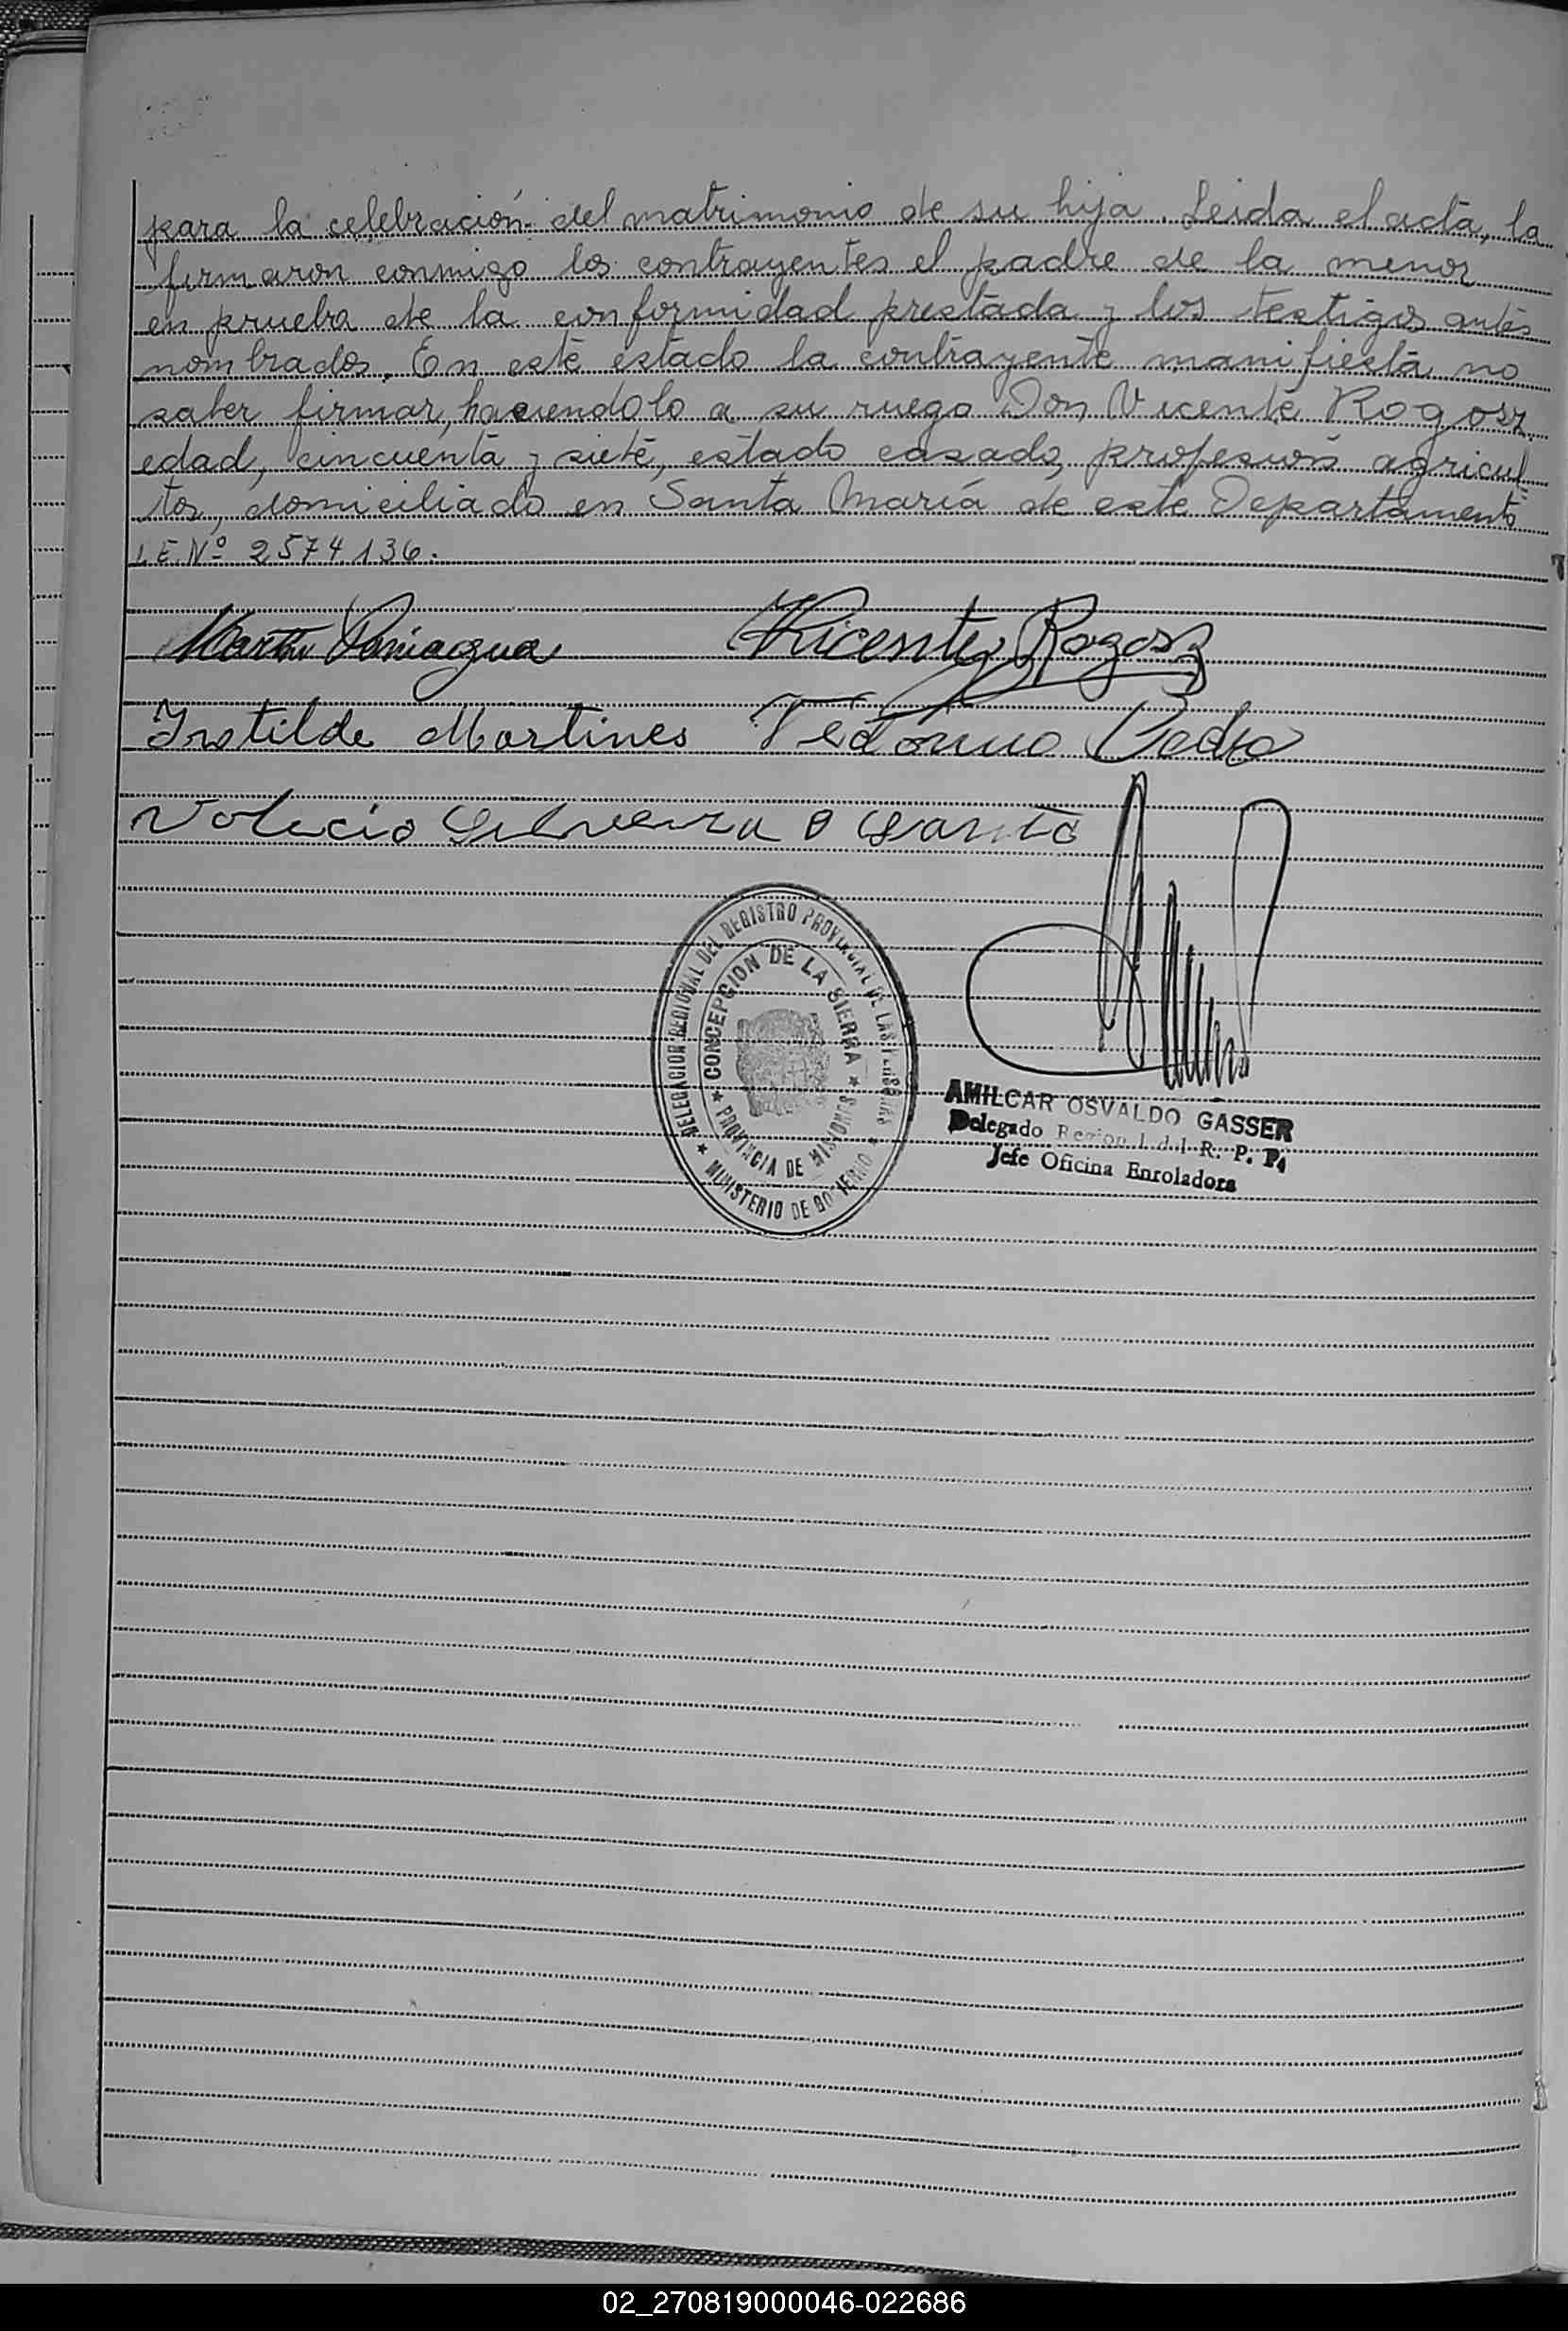 para la celebración del matrimonio de su hija. Leida el acta, la
firmaron conmigo los contrayentes el padre de la menor
en prueba de la conformidad prestada y los testigos antes
nombrados. En este estado la contrayente manifiesta no
saber firmar, haciendolo a su ruego Don Vicente Rogosz
edad, cincuenta y siete, estado casado, profesion agricul
tor, domiciliado en Santa María de este Departamento
L.E.Nº 2574136.
Martin Paniagua Vicente Rogosz
Martines
DELEGACION REGIONAL DEL REGISTRO PROVINCIAL DE LAS PERSONAS
★ CONCEPCION DE LA SIERRA ★
PROVINCIA DE MISIONES
★ MINISTERIO DE GOBIERNO ★
AMILCAR OSVALDO GASSER
Delegado Regional del R. P. P.
Jefe Oficina Enroladora
02_270819000046-022686